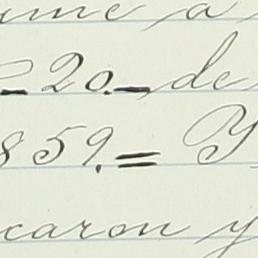 ume a
- 20. - de
859. = Y
caron y